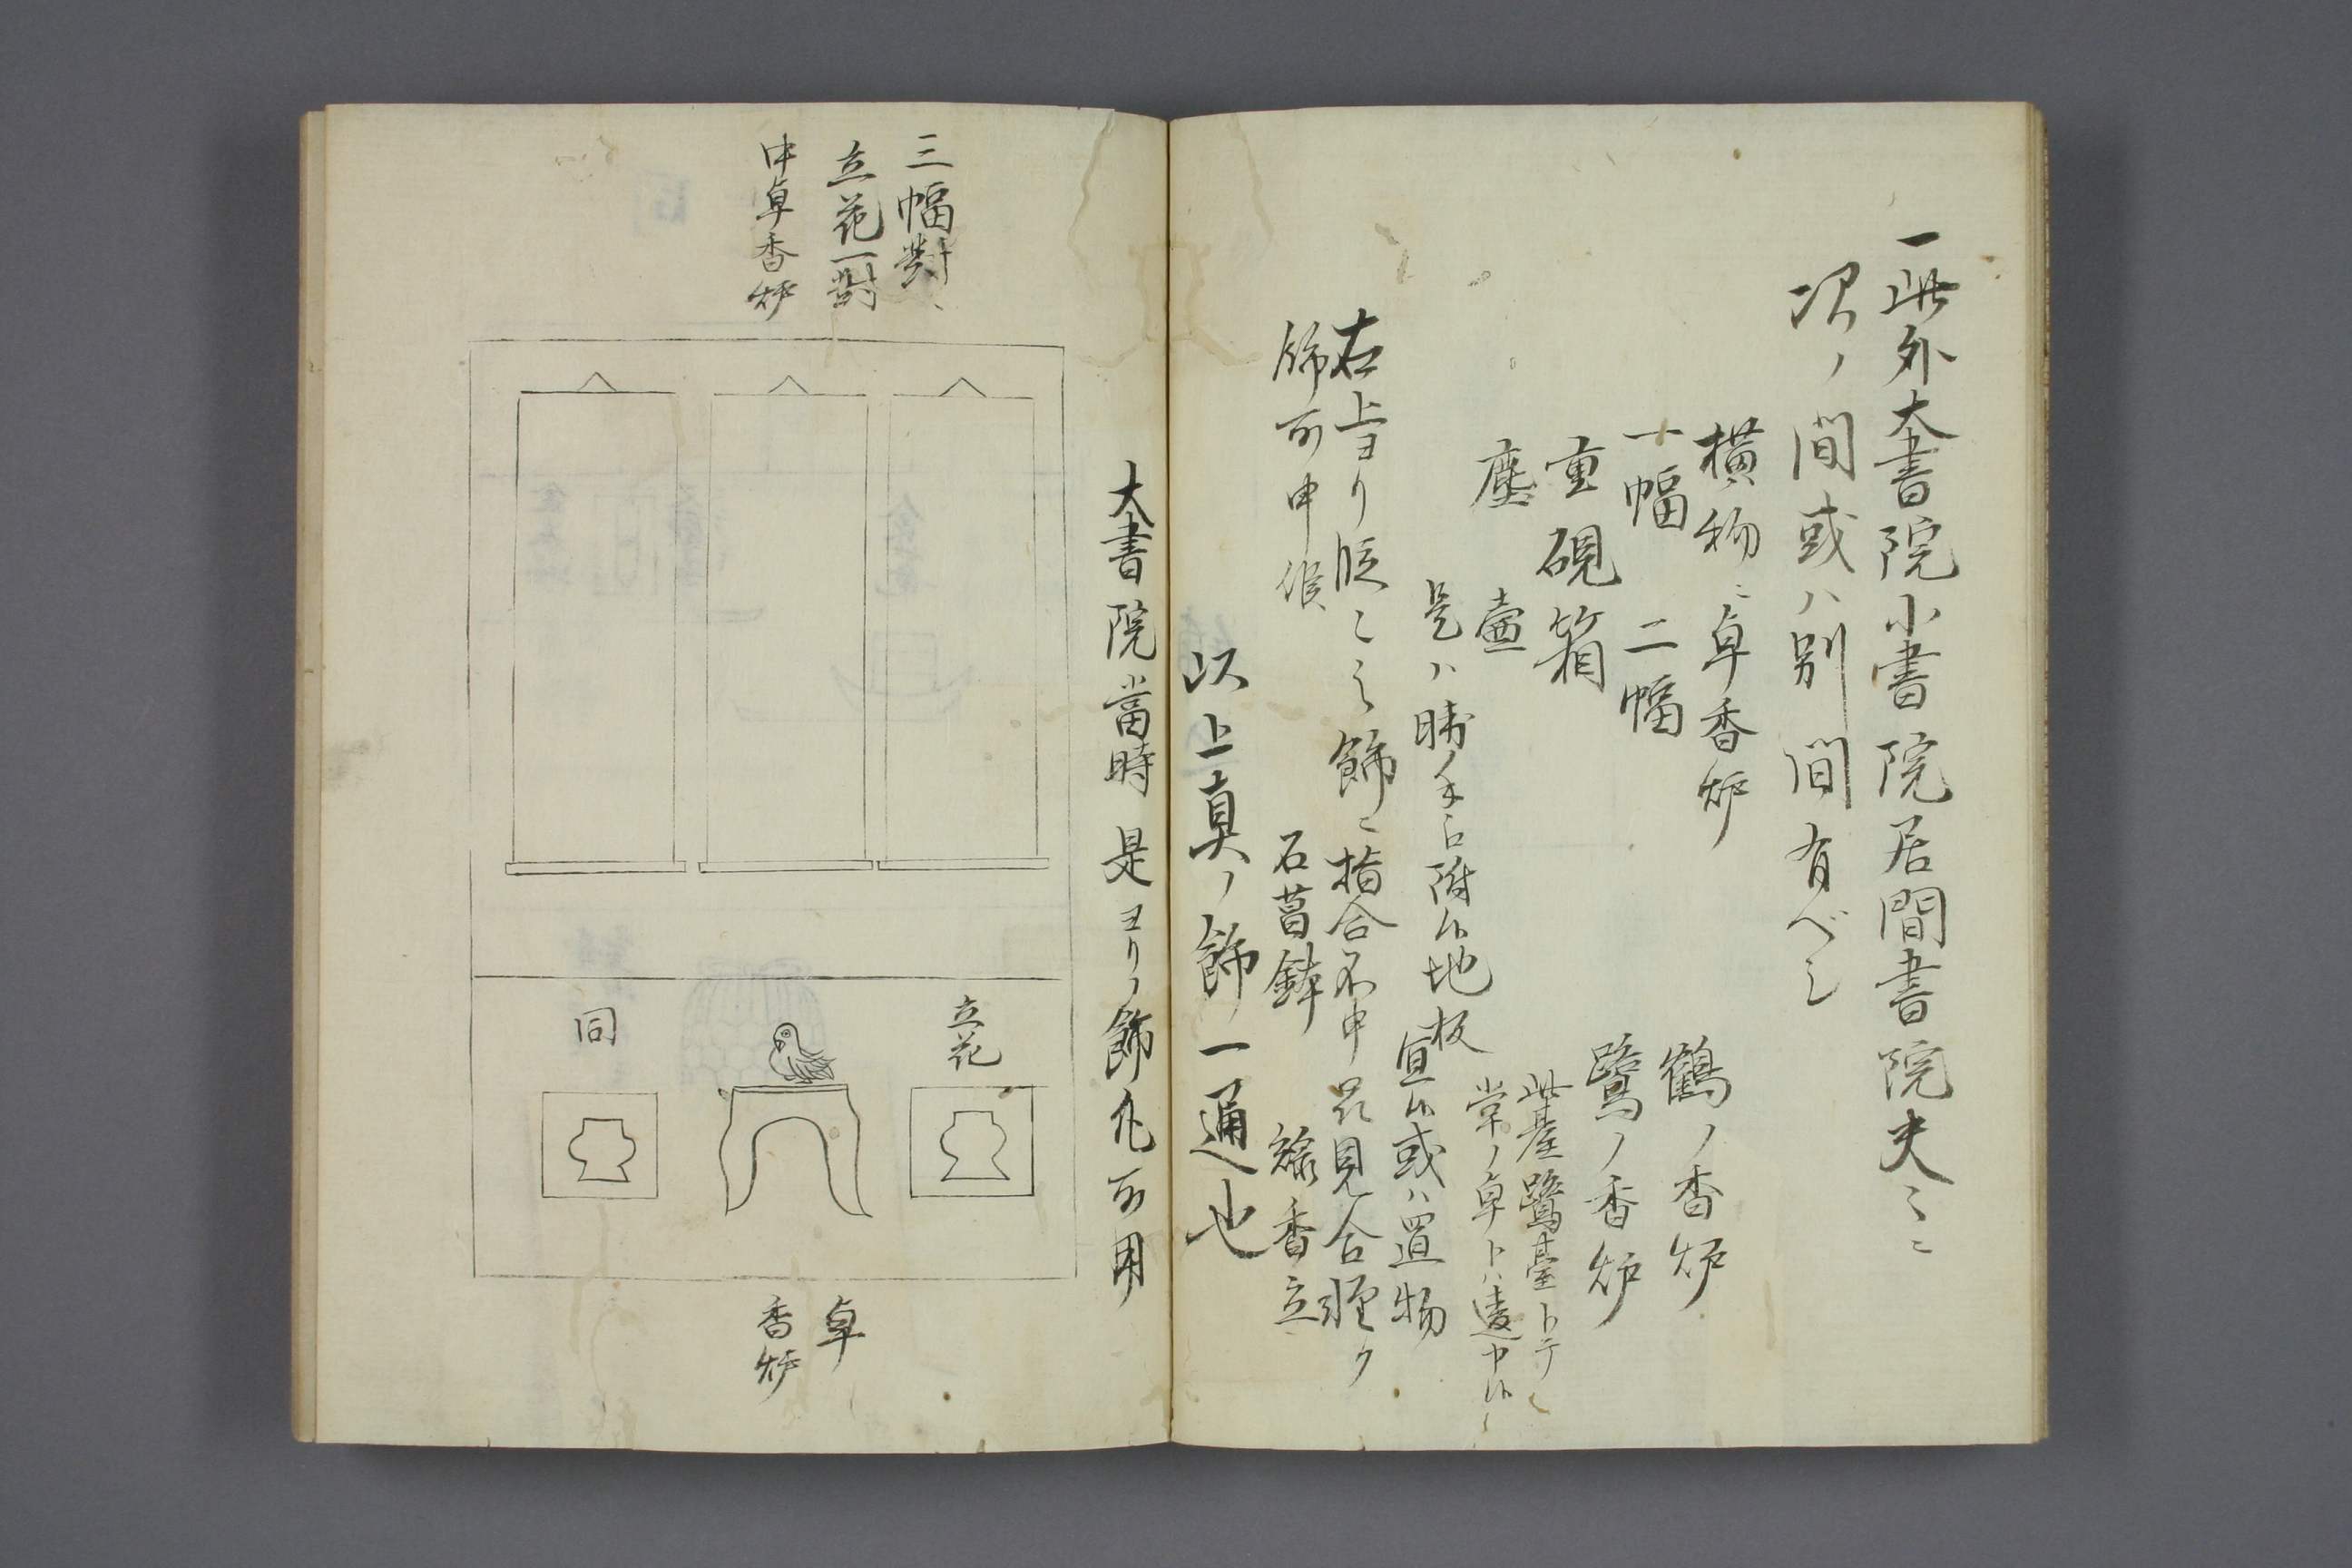 一此外大書院小書院居間書院夫〻ニ
次ノ間或ハ別間有ベシ
横物ニ卓香炉
鶴ノ香炉
一幅 二幅
鷺ノ香炉
重硯箱
此臺鷺臺トテ
常ノ卓トハ違申候
塵壷
是ハ勝手ニ附候地板
宜候或ハ置物
右上ヨリ段〻之飾ニ指合不申 見合軽ク
飾可申候
石菖鉢
線香立
以上真ノ飾一通也
大書院當時是ヨリノ飾化可用
三幅對
立花一對
中卓香炉
立花
同
卓
香炉